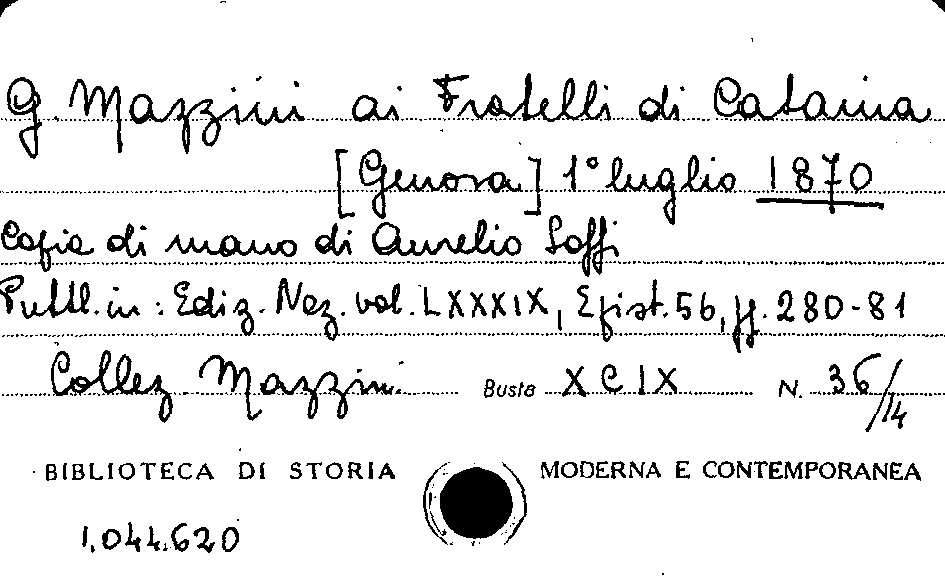 G. Mazzini ai Fratelli di Catania
[Genova] 1° luglio 1870
Copia di mano di Aurelio Saffi
Pubbl. in: Ediz. Naz. vol. LXXXIX, Epist. 56, pp. 280-81
Collez Mazzini Busta XCIX N. 36/14
BIBLIOTECA DI STORIA MODERNA E CONTEMPORANEA
1.044.620